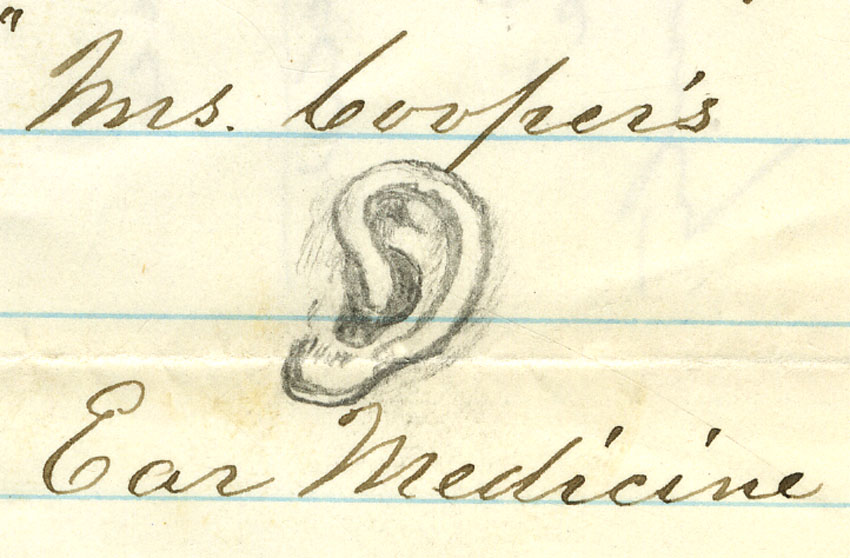 "Mrs. Cooper's
Ear Medicine